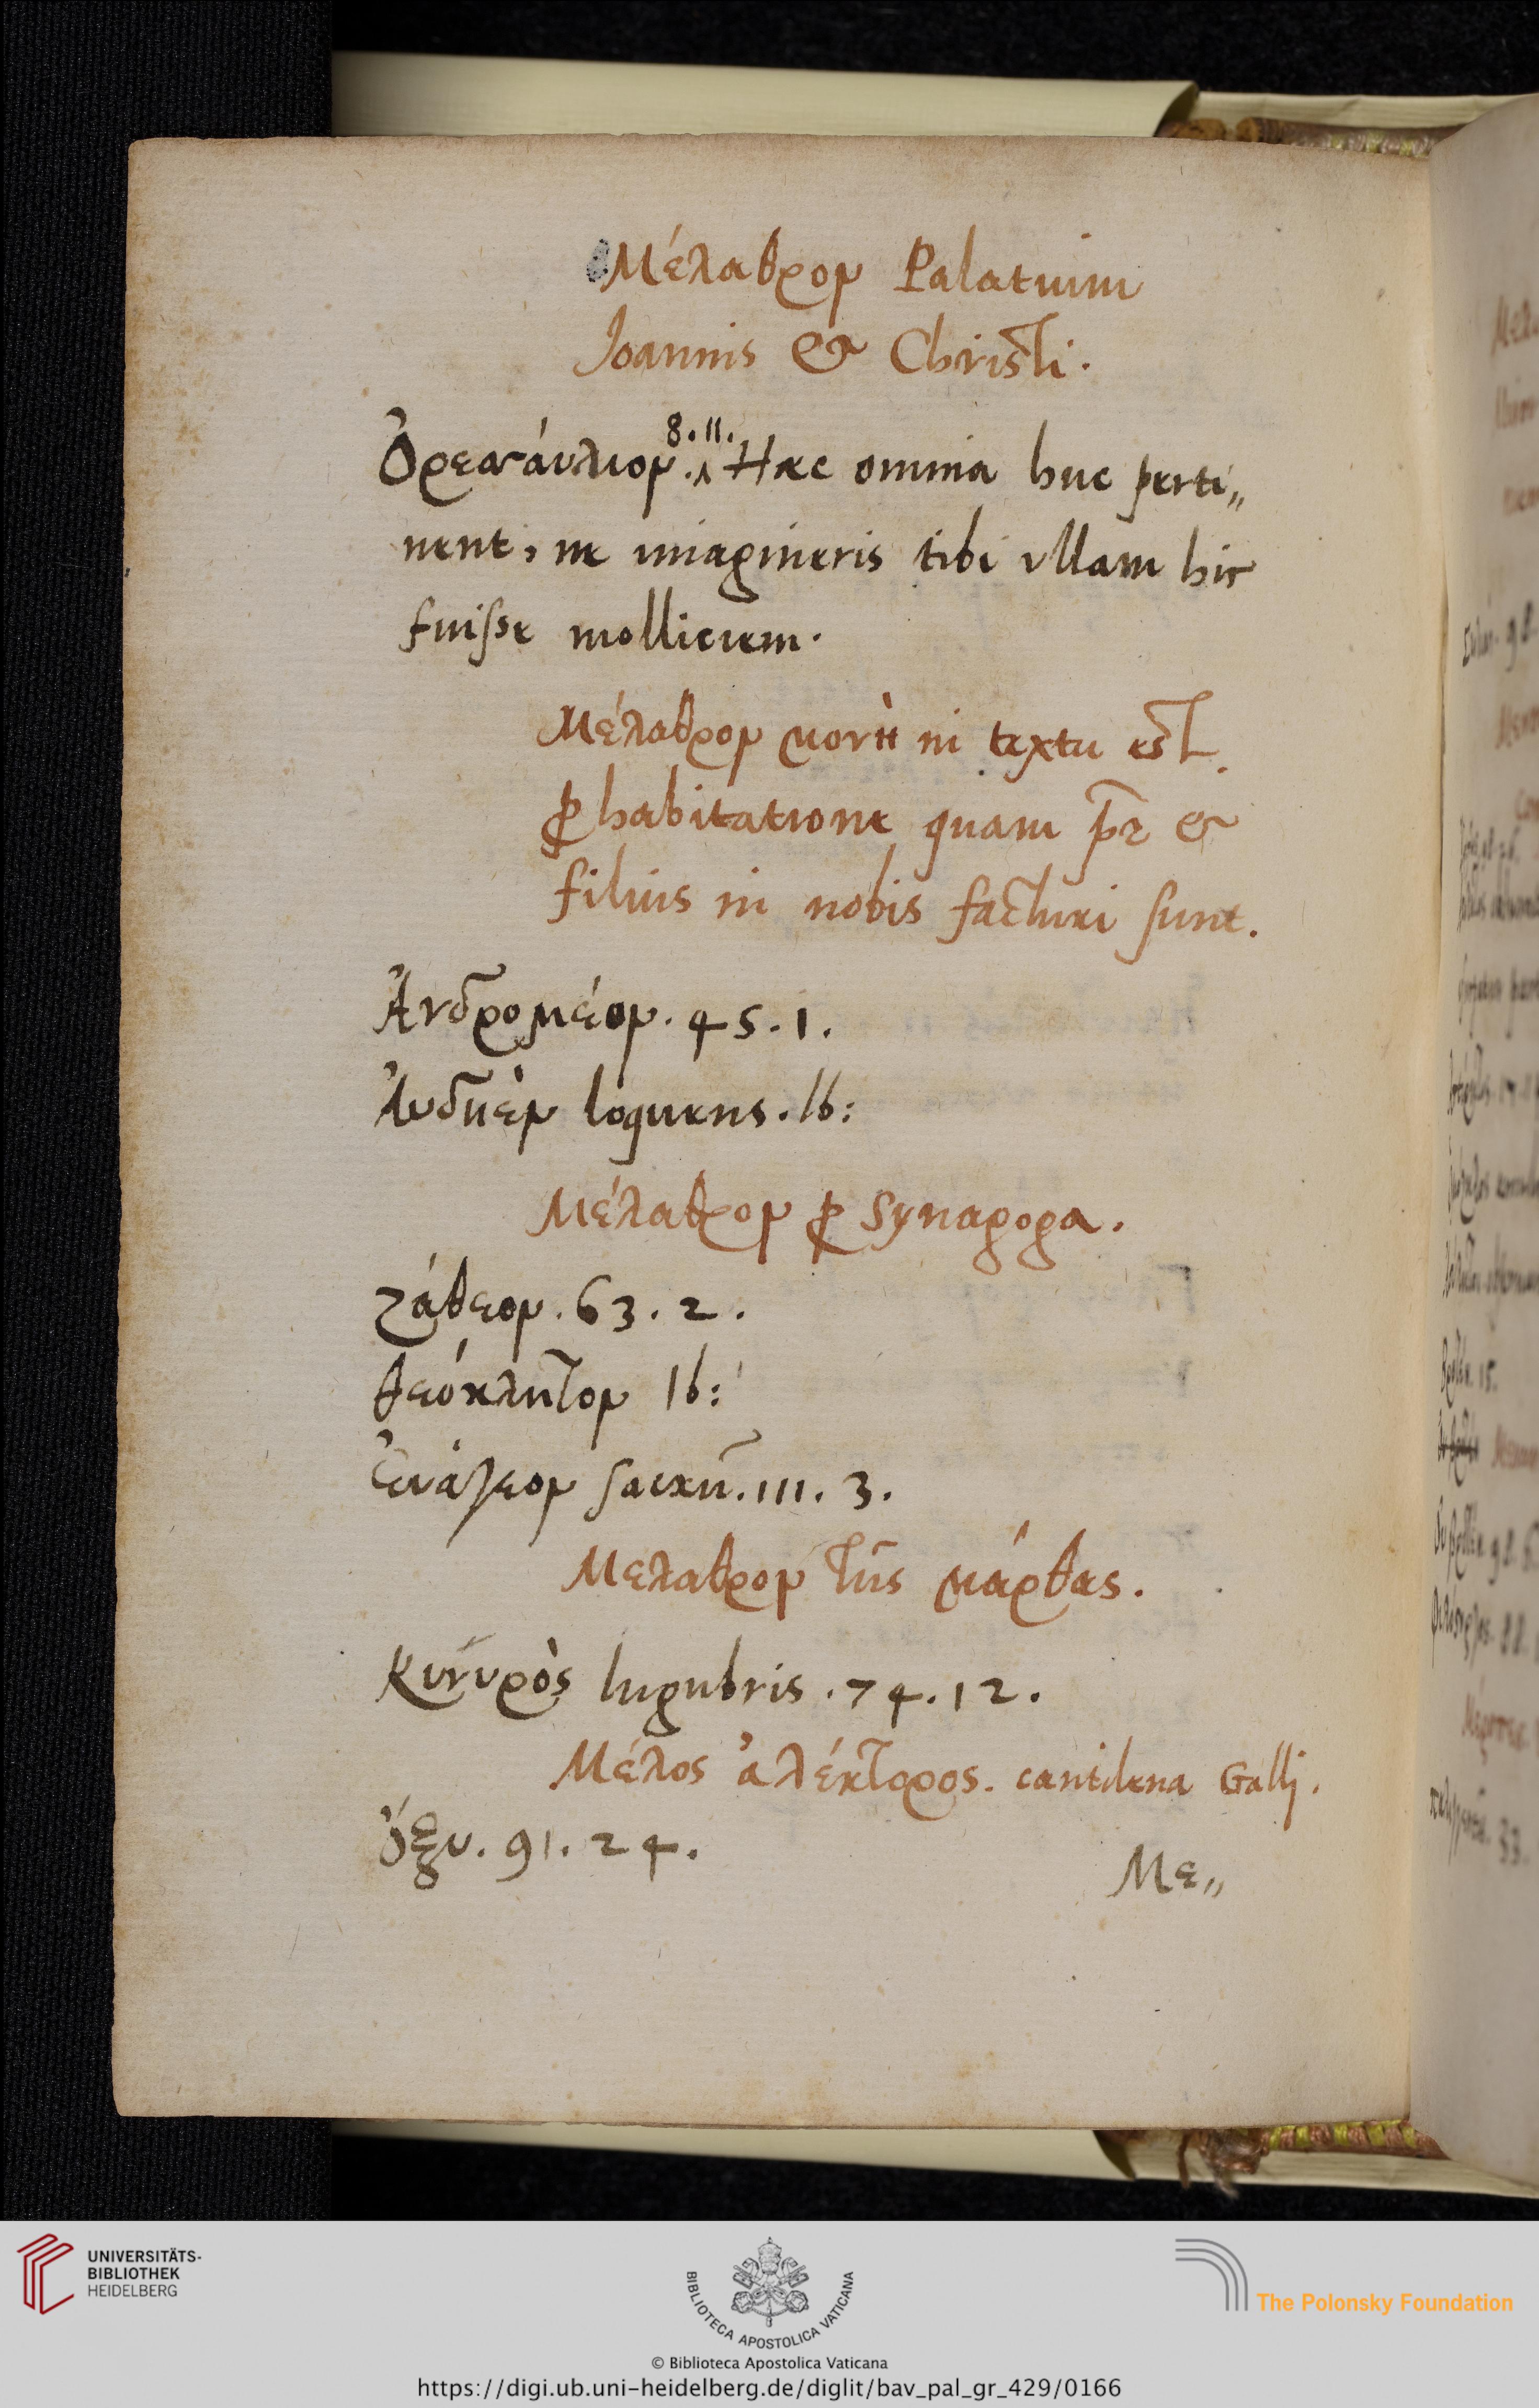 Μέλαθρον Palatium
Joannis & Christi.
8.11.
Ὀρεσάυλιον. Haec omnia huc perti„
nent, ne imagineris tibi ullam hic
fuisse molliciem.
Μέλαθρον in textu est
ꝓ habitatione quam pr̄ &
filius in nobis facturi sunt.
Ἀνδρομέον. 45. 1.
Ἀυδῆεν loquens. Ib:
Μέλαθρον ꝓ synagoga.
Ζάθεον. 63. 2.
θεόκλητον Ib:
sacrū. 111. 3.
Μελαθρον τῆς μάρθας.
Κινυρὸς lugubris. 74. 12.
Μέλος ἀλέκτορος. cantilena Galli.
ὄξυ. 91. 24.
Με„
UNIVERSITÄTS-
BIBLIOTHEK
HEIDELBERG
BIBLIOTECA APOSTOLICA VATICANA
The Polonsky Foundation
© Biblioteca Apostolica Vaticana
https://digi.ub.uni-heidelberg.de/diglit/bav_pal_gr_429/0166